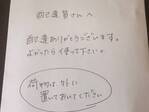 配達員さんへ
配達ありがとうございます。
よかったら使って下さい。
荷物は外に
置いておいてください